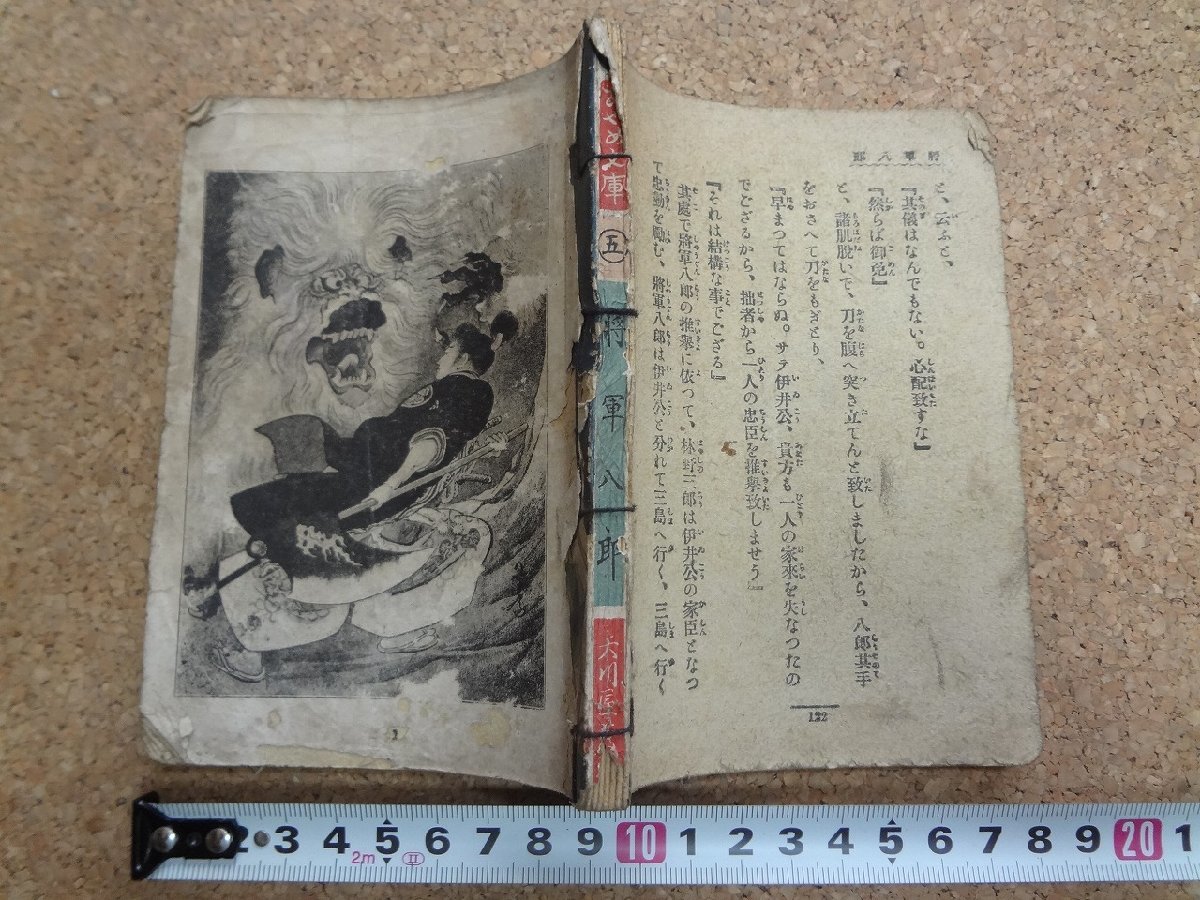 將軍八郎
と、云ふと、
『其儀はなんでもない。心配致すな』
『然らば御免』
と、諸肌脱いで、刀を腹へ突き立てんと致しましたから、八郎其手
をおさへて刀をもぎとり、
『早まつてはならぬ。サテ伊井公、貴方も一人の家來を失なつたの
でござるから、拙者から一人の忠臣を推擧致しませう』
『それは結構な事でござる』
其處で將軍八郎の推擧に依つて、林野三郎は伊井公の家臣となつ
て忠勤を勵む、將軍八郎は伊井公と分れて三島へ行く、三島へ行く
122
文庫
五
將軍八郎
大川屋
2 3 4 5 6 7 8 9 10 1 2 3 4 5 6 7 8 9 20 1
2m
Ⅱ